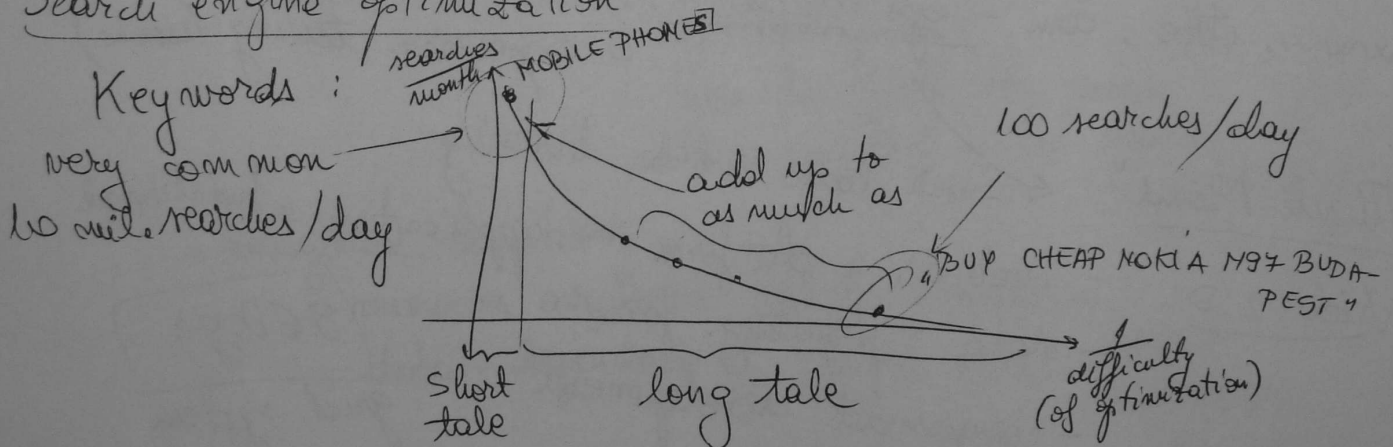 Search engine optimization
Keywords :
searches
month
MOBILE PHONES
very common
10 mil. searches/day
add up to
as much as
100 searches/day
"BUY CHEAP NOKIA N97 BUDA-
PEST"
short
tale
long tale
1
difficulty
(of optimization)